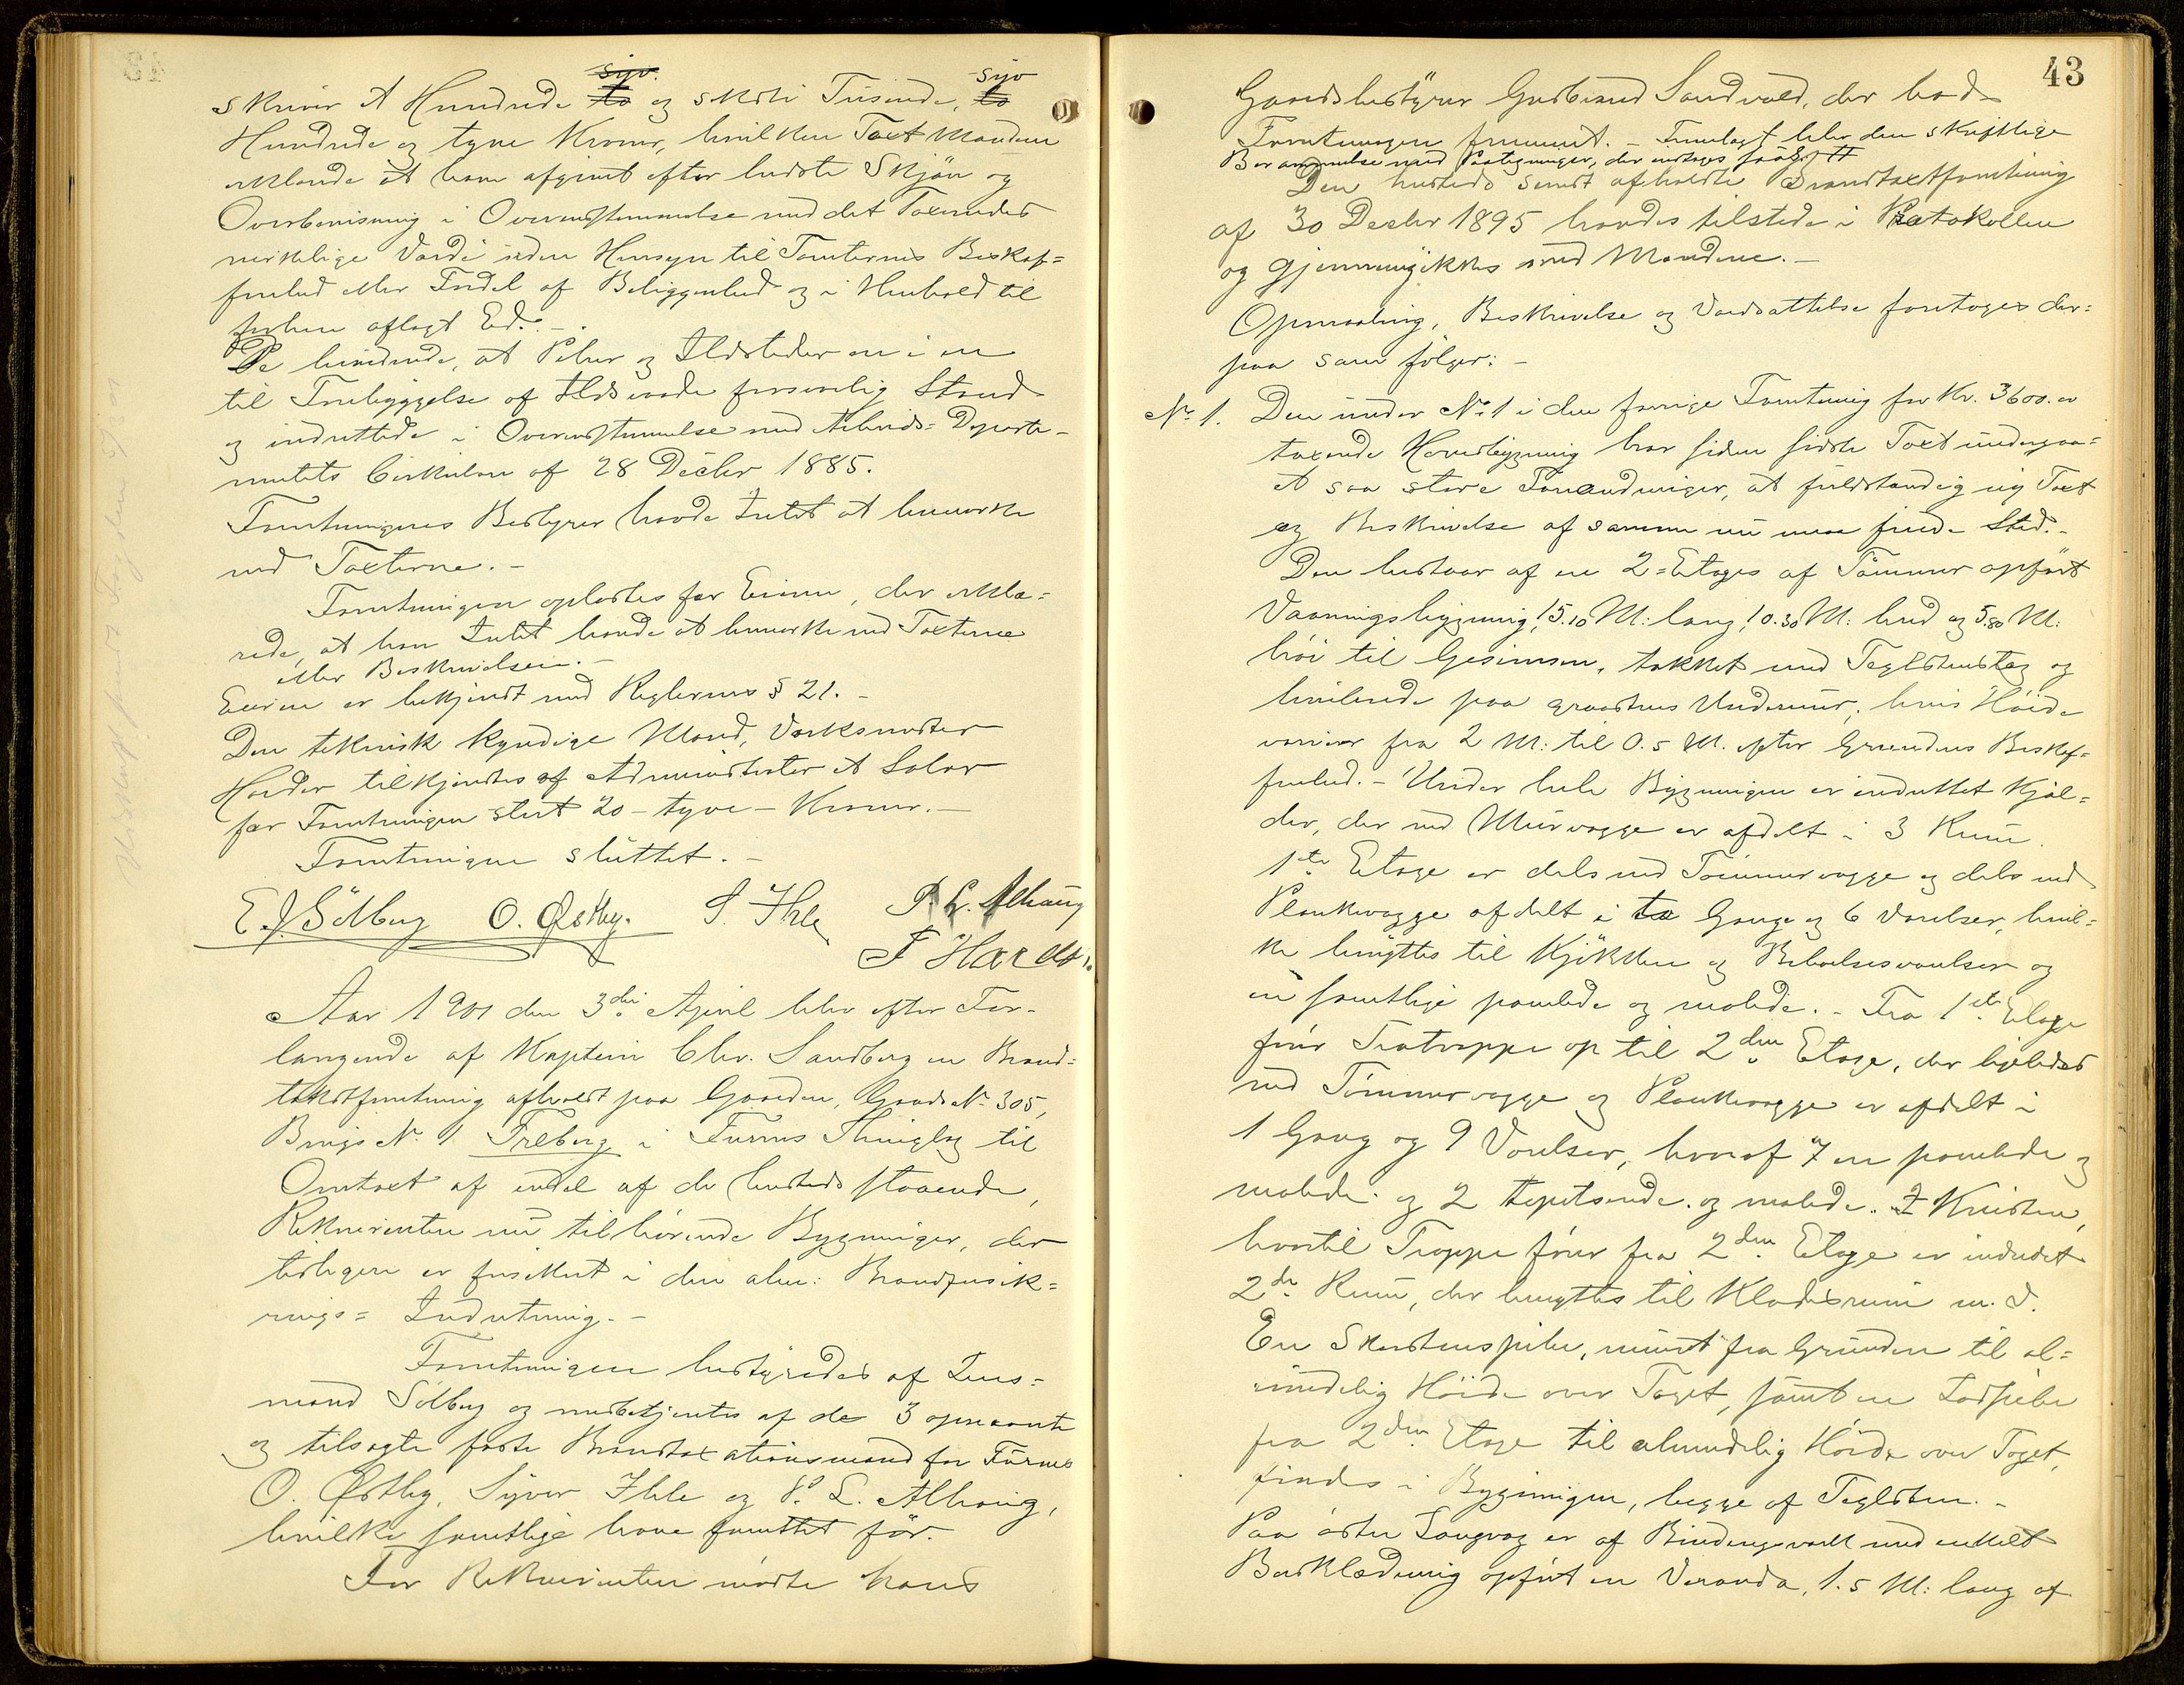 skriver et Hundrede syv og sexti Tusende, syv
Hundrede og tyve Kroner, hvilken Taxt Mændene
erklærede at have afgivet efter bedste Skjön og
Overbevisning i Overensstemmelse med det Taxeredes
virkelige Værdi uden Hensyn til Tomternes Beskaf=
fenhed eller Fordel af Beliggenhed og i Henhold til
forhen aflagt Ed. -
De bevidnede, at Peber og Ildsteder ere i en
til Forebyggelse af Ildsvaade forsvarlig Stand
og indrettede i Overensstemmelse med Arbeids-Departe-
mentets Cirkulære af 28 Decbr 1885.
Forretningens Bestyrer havde Intet at bemærke
ved Taxterne. -
Forretningen oplæstes for Eieren, der erklæ=
rede, at han Intet havde at bemærke ved Taxterne
eller Beskrivelsen. -
Eieren er bekjendt med Reglernes § 21. -
Den teknisk kyndige Mand, Værksmester
Harder tilkjendtes af Administrator et Salær
for Forretningen stort 20 - tyve - Kroner. -
Forretningen sluttet. -
E. J. Sölberg O. Østby. S. Ihle P. L. Alhaug
F Harder.
Aar 1901 den 3die April blev efter For-
langende af Kaptein Chr. Sandberg en Brand=
takstforretning afholdt paa Gaarden, Gaards No 305,
Brugs No 1 Freberg i Furnes Thinglag til
Omtaxt af endel af de herstedsstaaende,
Rekvirenten nu tilhørende Bygninger, der
tidligere er forsikret i den alm: Brandforsik=
rings= Indretning. -
Forretningen bestyredes af Lens=
mand Sölberg og medbetjentes af de 3 opnævnte
og tilsagte faste Brandtaxationsmænd for Furnes
O. Østby, Syver Ihle og P. L. Alhaug,
hvilke samtlige have forrettet för.
For Rekvirenten mødte hans
43
Gaardsbestyrer Gudbrand Sandvold, der bad
Forretningen fremmet. - Fremlagt blev den skriftlige
Berammelse med Paategninger, der indtages saalydt
Den hersteds senest afholdte Brandtaxtforretning
af 30 Decbr 1895 havdes tilstede i Protokollen
og gjennemgikkes med Mændene. -
Opmaaling, Beskrivelse og Værdsættelse foretoges der=
paa som fölger: -
No 1. Den under No 1 i den forrige Forretning for Kr. 3600. er
taxerede Hovedbygning har siden sidste Taxt undergaa=
et saa store Forandringer, at fuldstændig ny Taxt
og Beskrivelse af samme nu maa finde Sted. -
Den bestaar af en 2=Etages af Tömmer opfört
Vaaningsbygning, 15.10 M: lang, 10.30 M: bred og 5.80 M:
höi til Gesimsen, tækket med Teglstenstag og
hvilende paa graastens Undermur, hvis Höide
varierer fra 2 M: til 0.5 M. efter Grundens Beskaf=
fenhed. - Under hele Bygningen er indrettet Kjæl=
der, der ved Murvægge er afdelt i 3 Rum.
1ste Etage er dels ved Tömmervægge og dels ved
Plankevægge afdelt i to Gange og 6 Værelser, hvil=
ke benyttes til Kjökken og Beboelsesværelser og
er samtlige panelede og malede. - Fra 1ste Etage
förer Trætrappe op til 2den Etage, der ligeledes
ved Tömmervægge og Plankevægge er afdelt i
1 Gang og 9 Værelser, hvoraf 7 er panelede og
malede og 2 tapetserede og malede. I Kvisten,
hvortil Trappe förer fra 2den Etage er indredet
2de Rum, der benyttes til Klædesrum m. v.
En Skorstenspibe, muret fra Grunden til al=
mindelig Höide over Taget, samt en Lodpibe
fra 2den Etage til almindelig Höide over Taget,
findes i Bygningen, begge af Teglsten. -
Paa östre Langvæg er af Bindingsværk med enkelt
Bordklædning opfört en Veranda, 1.5 M: lang af